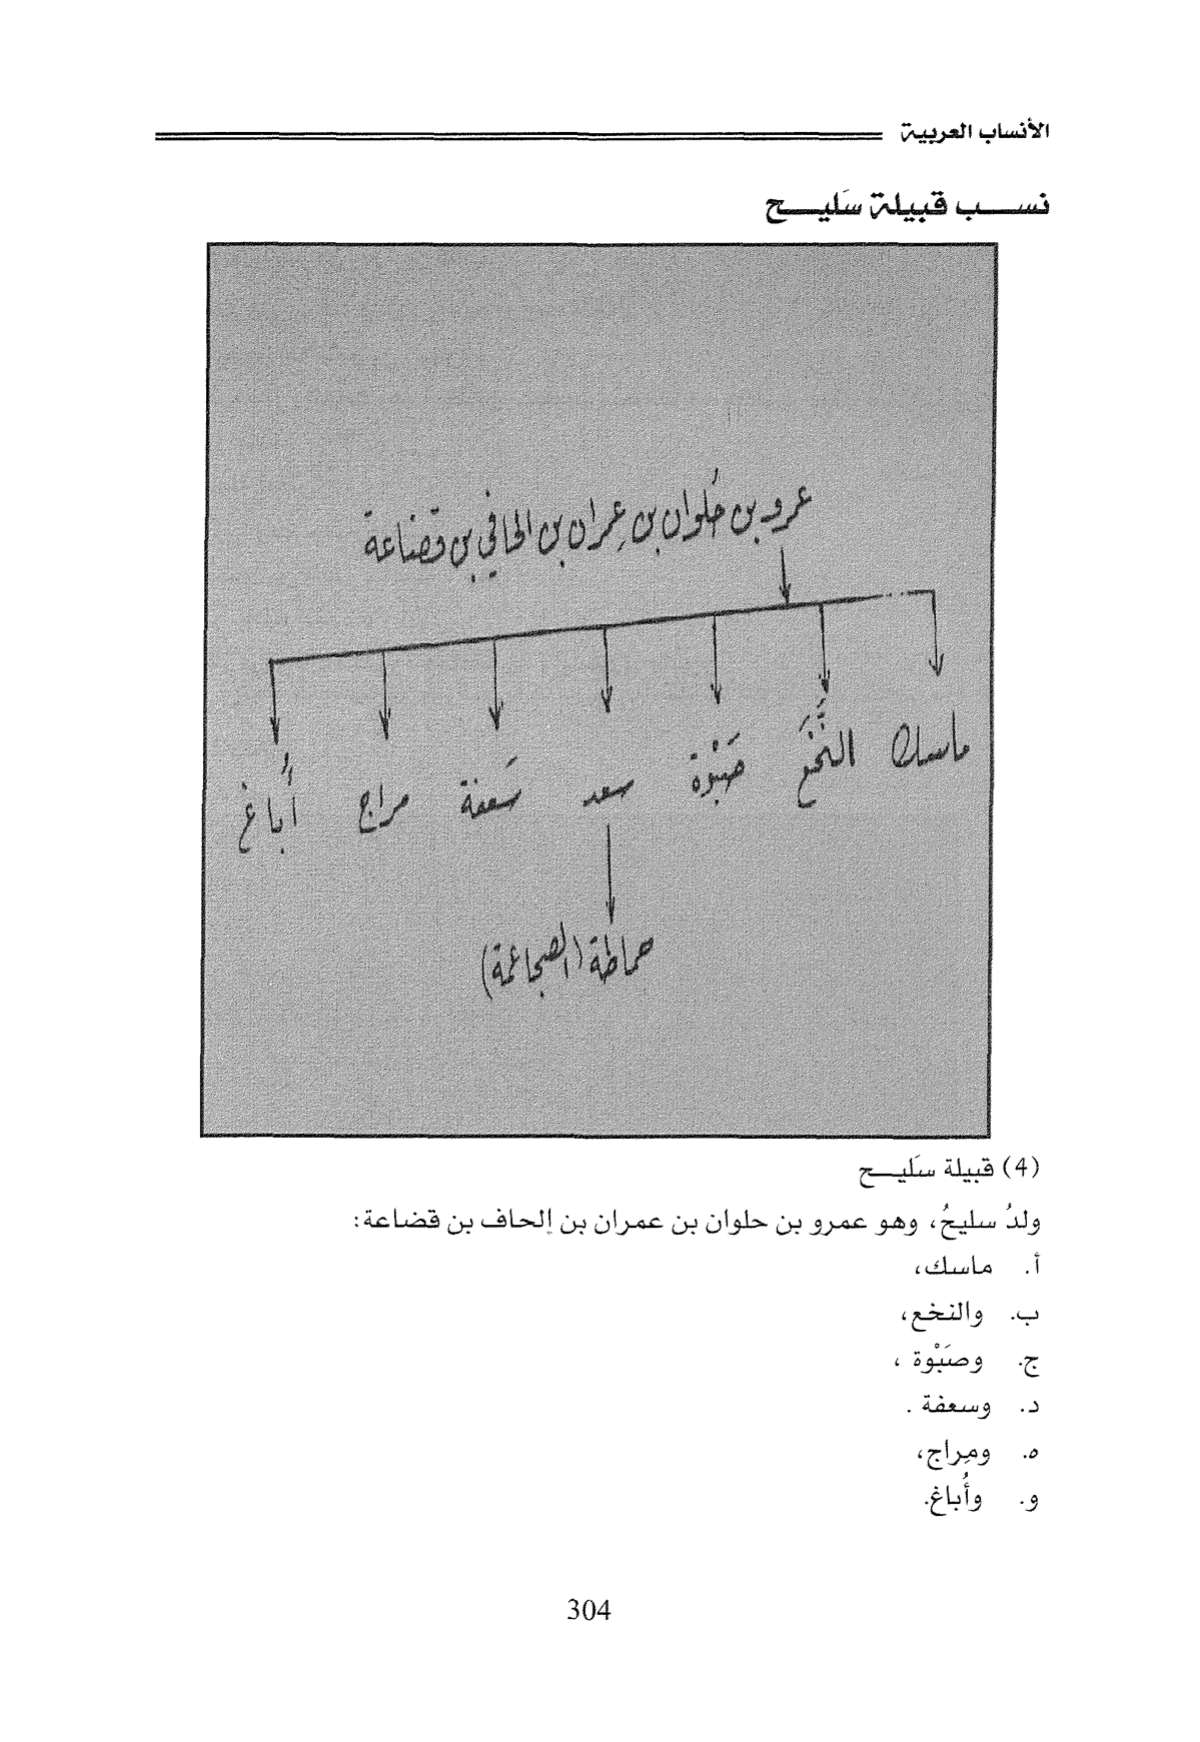 الأنساب العربية
نسب قبيلة سَليح
عمرو بن حُلوان بن عِمران بن الحافي بن قضاعة
ماسك النَّخَع صَبْوة سعد سَعفة مراج أُباغ
حماطة (الضجاعمة)
(4) قبيلة سَليح
ولدُ سليحُ، وهو عمرو بن حلوان بن عمران بن إلحاف بن قضاعة:
أ. ماسك،
ب. والنخع،
ج. وصَبْوة ،
د. وسعفة .
ه. ومِراج،
و. وأُباغ.
304